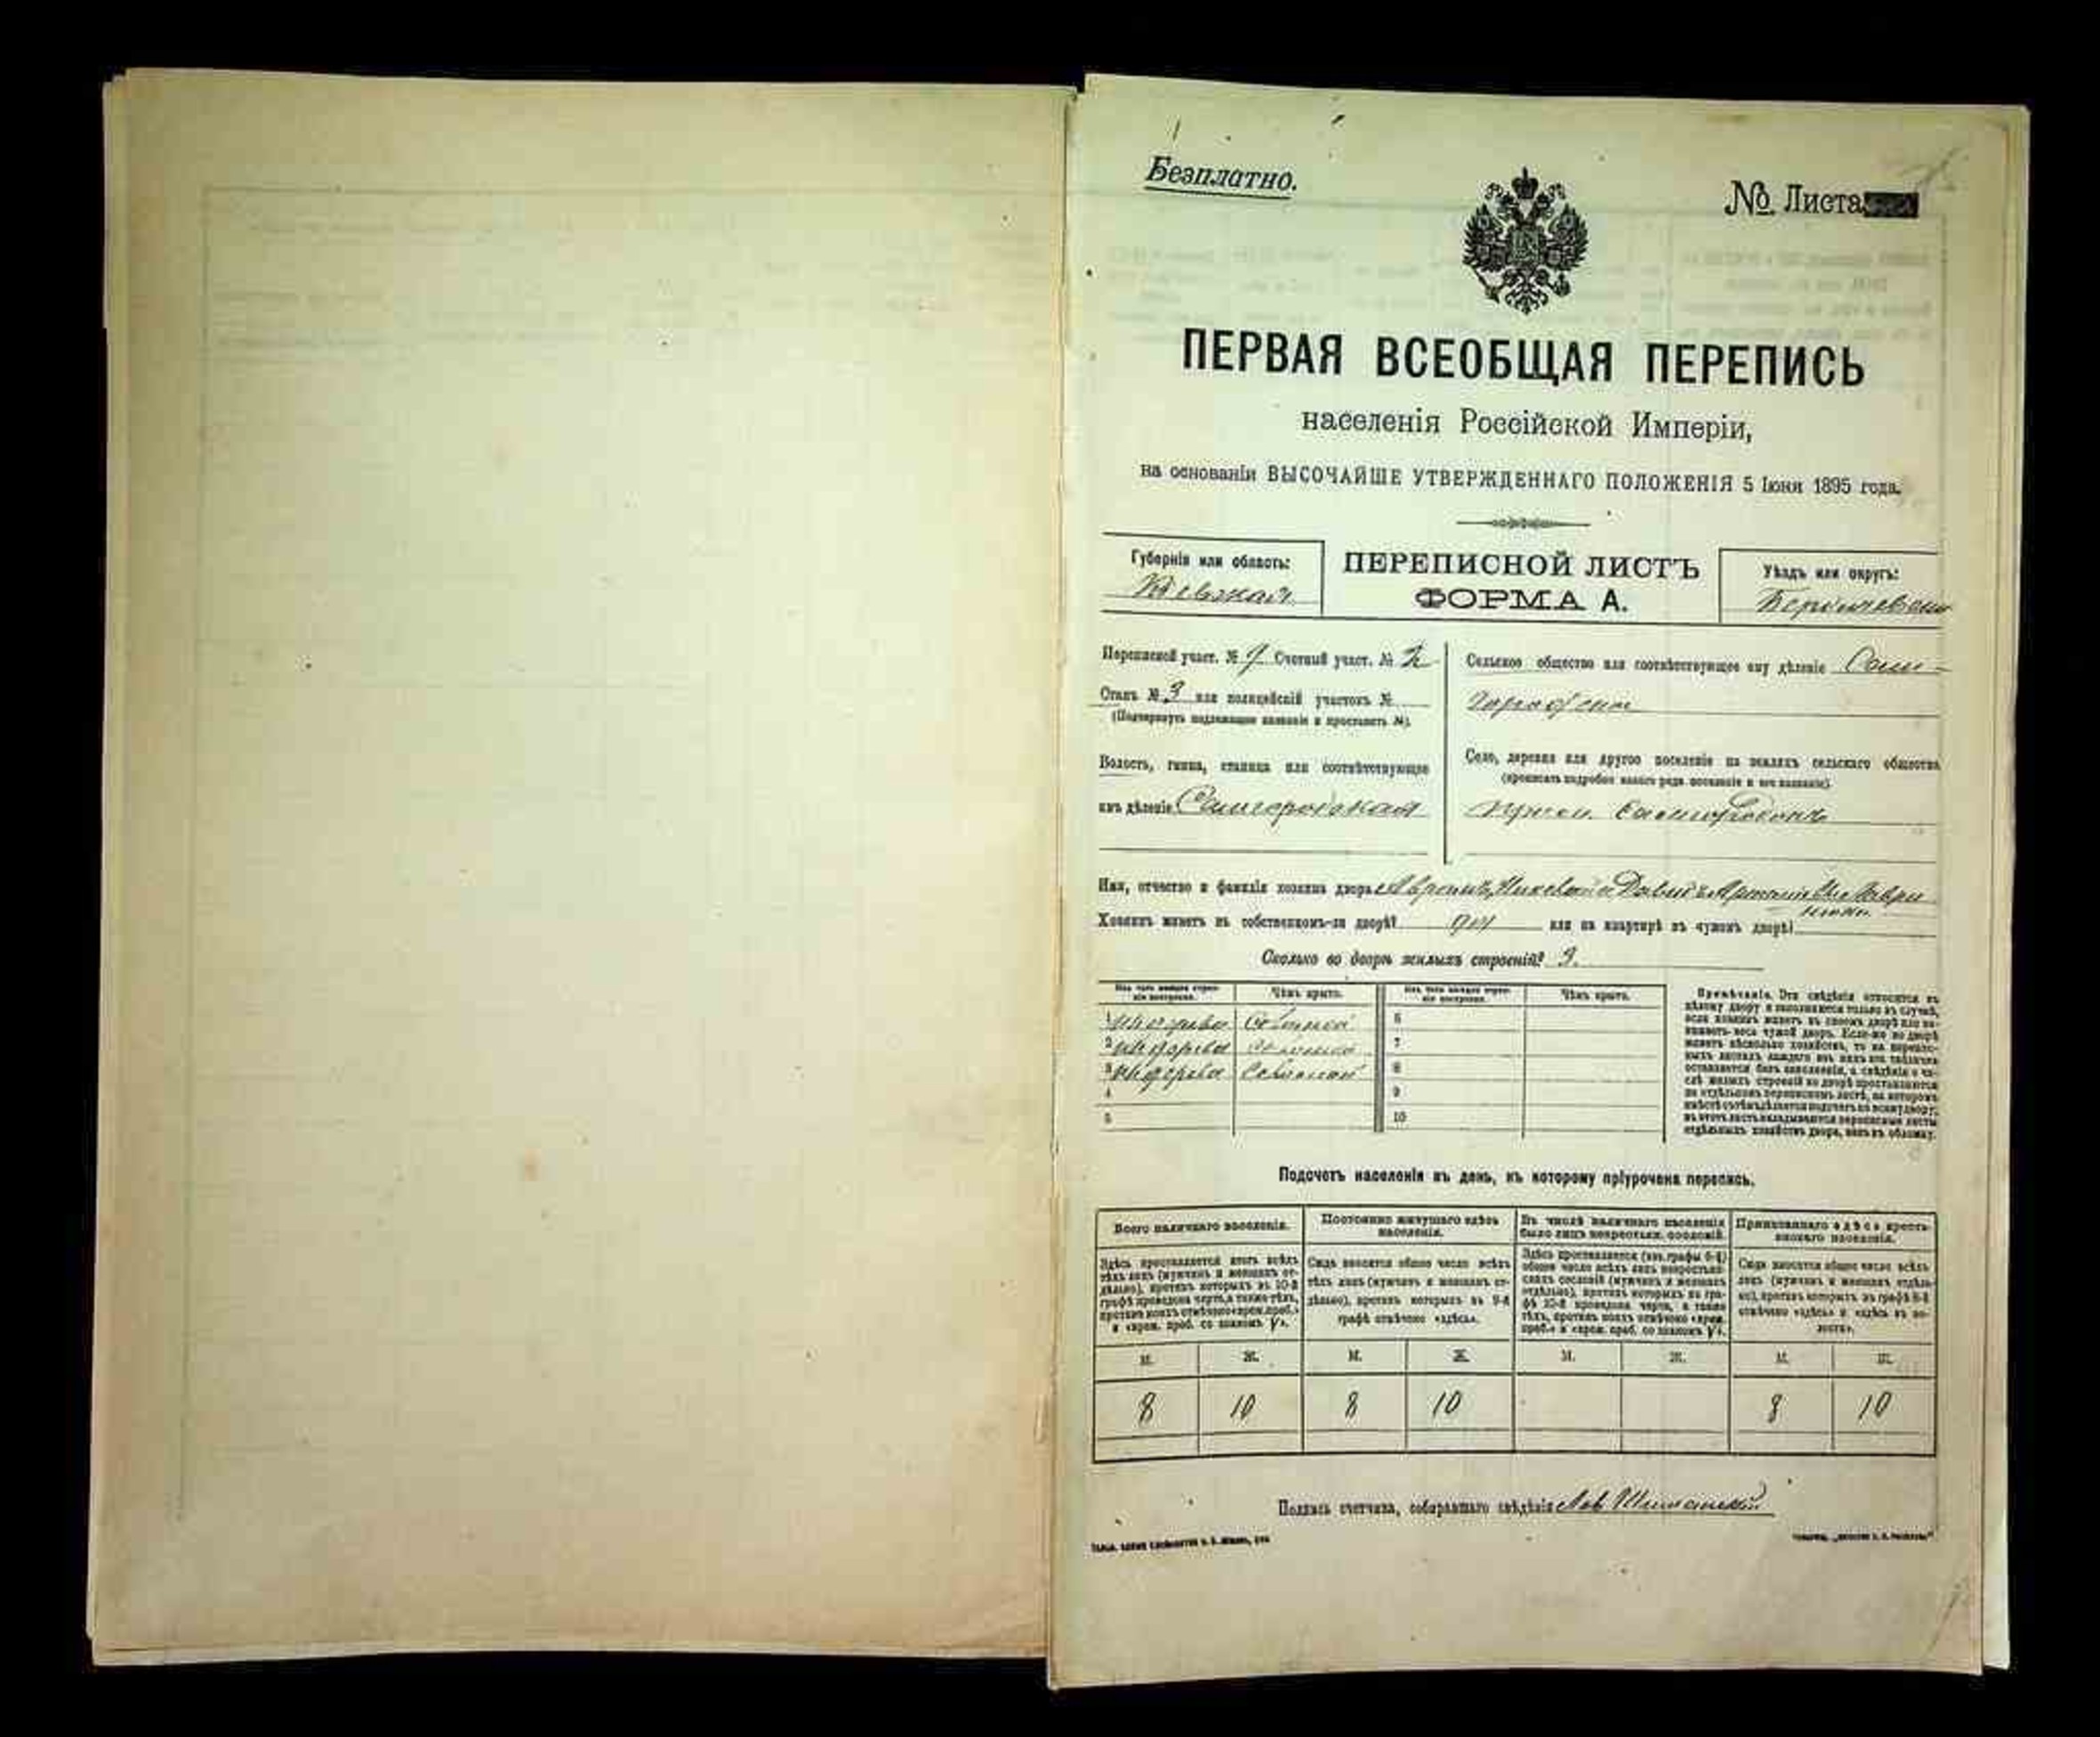 Безплатно.
№ Листа
ПЕРВАЯ ВСЕОБЩАЯ ПЕРЕПИСЬ
населенія Россійской Имперіи,
на основаніи ВЫСОЧАЙШЕ УТВЕРЖДЕННАГО ПОЛОЖЕНІЯ 5 Іюня 1895 года.
Губернія или область:
Кіевская
ПЕРЕПИСНОЙ ЛИСТЪ
ФОРМА А.
Уѣздъ или округъ:
Переписной участ. № Счетный участ. № 2
Станъ № 3 или полицейскій участокъ №
(Подчеркнуть надлежащее названіе и проставить №).
Волость, гмина, станица или соотвѣтствующее
имъ дѣленіе Самгородская
Сельское общество или соотвѣтствующее ему дѣленіе Сам-
Село, деревня или другое поселеніе на земляхъ сельскаго общества
(прописать подробно какого рода поселеніе и его названіе).
Имя, отчество и фамилія хозяина двора
Хозяинъ живетъ въ собственномъ-ли дворѣ? или на квартирѣ въ чужомъ дворѣ?
Сколько во дворѣ жилыхъ строеній? 3.
Изъ чего каждое строеніе построено. Чѣмъ крыто. Изъ чего каждое строеніе построено. Чѣмъ крыто.
1 изъ дерева Соломой 6
2 изъ дерева соломой 7
3 изъ дерева Соломой 8
4 9
5 10
Примѣчаніе. Эти свѣдѣнія относятся къ
цѣлому двору и заполняются только въ случаѣ,
если хозяинъ живетъ въ своемъ дворѣ или на-
нимаетъ весь чужой дворъ. Если-же во дворѣ
живетъ нѣсколько хозяйствъ, то на перепис-
ныхъ листахъ каждаго изъ нихъ эти свѣдѣнія
оставляются безъ заполненія, а свѣдѣнія о чи-
слѣ жилыхъ строеній во дворѣ проставляются
на отдѣльномъ переписномъ листѣ, на которомъ
вмѣстѣ съ тѣмъ дѣлается подсчетъ по всему двору;
въ этотъ листъ вкладываются переписные листы
отдѣльныхъ хозяйствъ двора, какъ въ обложку.
Подсчетъ населенія въ день, къ которому пріурочена перепись.
Всего наличнаго населенія.
Здѣсь проставляется итогъ всѣхъ
тѣхъ лицъ (мужчинъ и женщинъ от-
дѣльно), противъ которыхъ въ 10-й
графѣ проведена черта, а также тѣхъ,
противъ коихъ отмѣчено «врем. преб.»
и «врем. преб. со знакомъ V».
Постоянно живущаго здѣсь
населенія.
Сюда вносится общее число всѣхъ
тѣхъ лицъ (мужчинъ и женщинъ от-
дѣльно), противъ которыхъ въ 9-й
графѣ отмѣчено «здѣсь».
Въ числѣ наличнаго населенія
было лицъ некрестьян. сословій.
Здѣсь проставляется (изъ графы 6-й)
общее число всѣхъ лицъ некрестьян-
скихъ сословій (мужчинъ и женщинъ
отдѣльно), противъ которыхъ въ гра-
фѣ 10-й проведена черта, а также
тѣхъ, противъ коихъ отмѣчено «врем.
преб.» и «врем. преб. со знакомъ V».
Приписаннаго здѣсь кресть-
янскаго населенія.
Сюда вносится общее число всѣхъ
лицъ (мужчинъ и женщинъ отдѣль-
но), противъ которыхъ въ графѣ 8-й
отмѣчено «здѣсь» и «здѣсь въ во-
лости».
М. Ж. М. Ж. М. Ж. М. Ж.
8 10 8 10 8 10
Подпись счетчика, собиравшаго свѣдѣнія